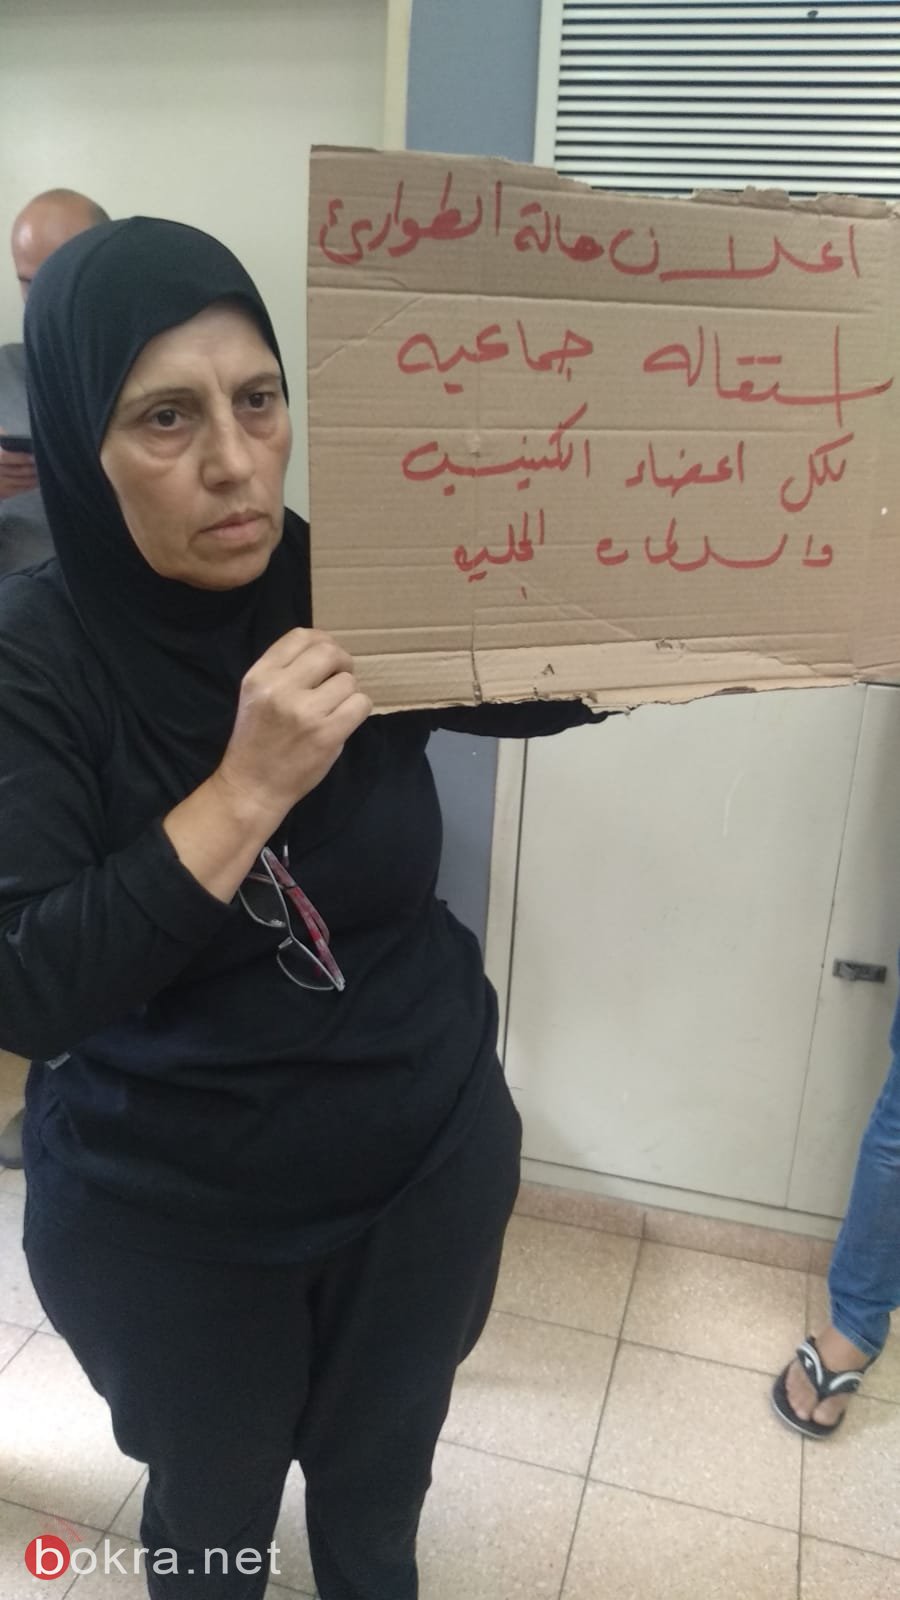 اعلان حالة الطوارئ
استقاله جماعيه
لكل اعضاء الكنيست
والسلطات المحليه
bokra.net